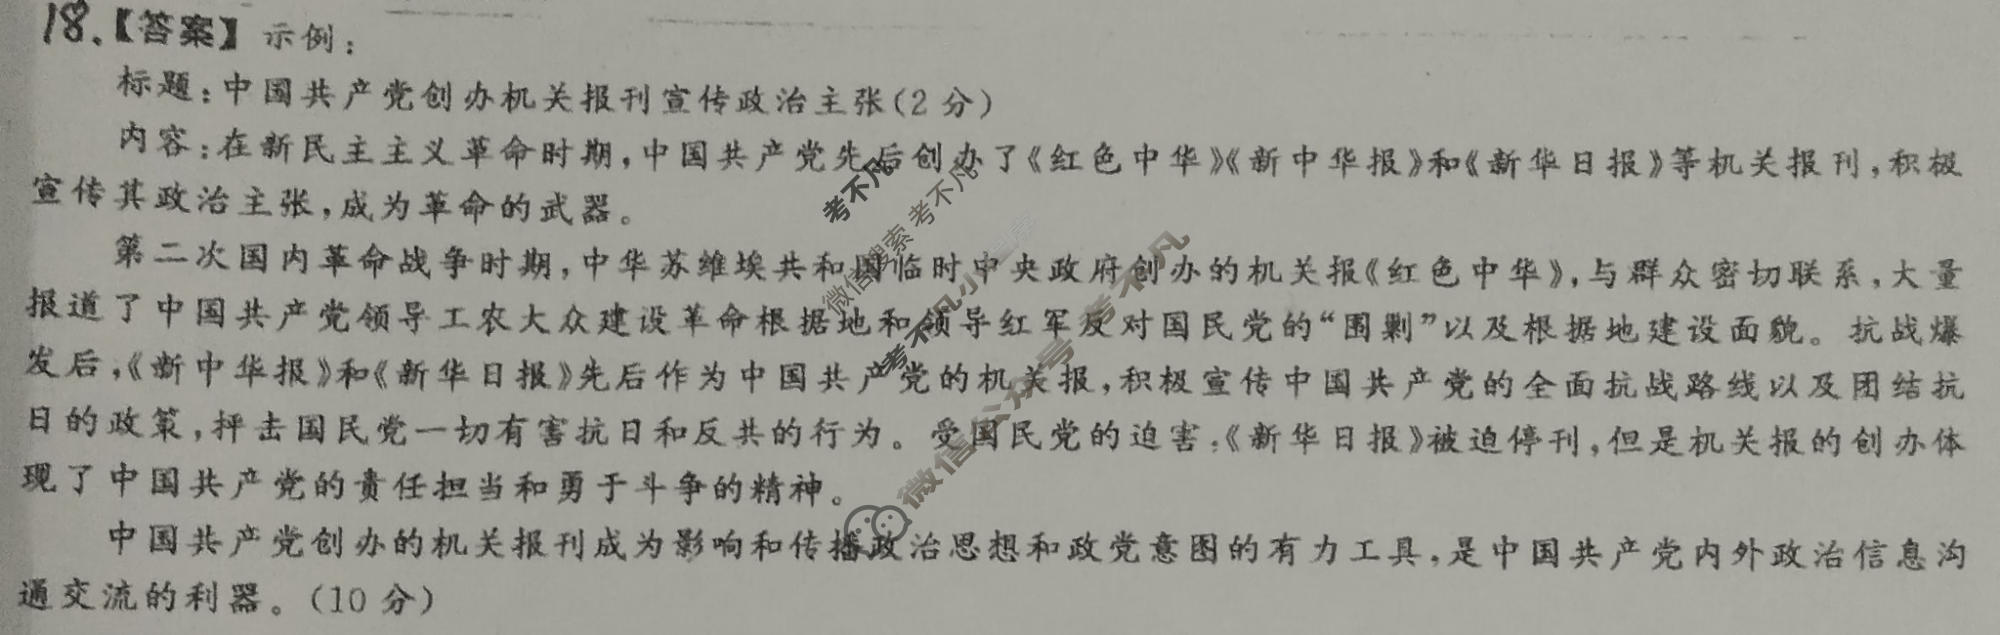 18.【答案】示例：
标题：中国共产党创办机关报刊宣传政治主张(2分)
内容：在新民主主义革命时期，中国共产党先后创办了《红色中华》《新中华报》和《新华日报》等机关报刊，积极
宣传其政治主张，成为革命的武器。
第二次国内革命战争时期，中华苏维埃共和国临时中央政府创办的机关报《红色中华》，与群众密切联系，大量
报道了中国共产党领导工农大众建设革命根据地和领导红军反对国民党的“围剿”以及根据地建设面貌。抗战爆
发后，《新中华报》和《新华日报》先后作为中国共产党的机关报，积极宣传中国共产党的全面抗战路线以及团结抗
日的政策，抨击国民党一切有害抗日和反共的行为。受国民党的迫害，《新华日报》被迫停刊，但是机关报的创办体
现了中国共产党的责任担当和勇于斗争的精神。
中国共产党创办的机关报刊成为影响和传播政治思想和政党意图的有力工具，是中国共产党内外政治信息沟
通交流的利器。(10分)
考不凡
微信搜索考不凡
考不凡小程序
微信公众号 考不凡